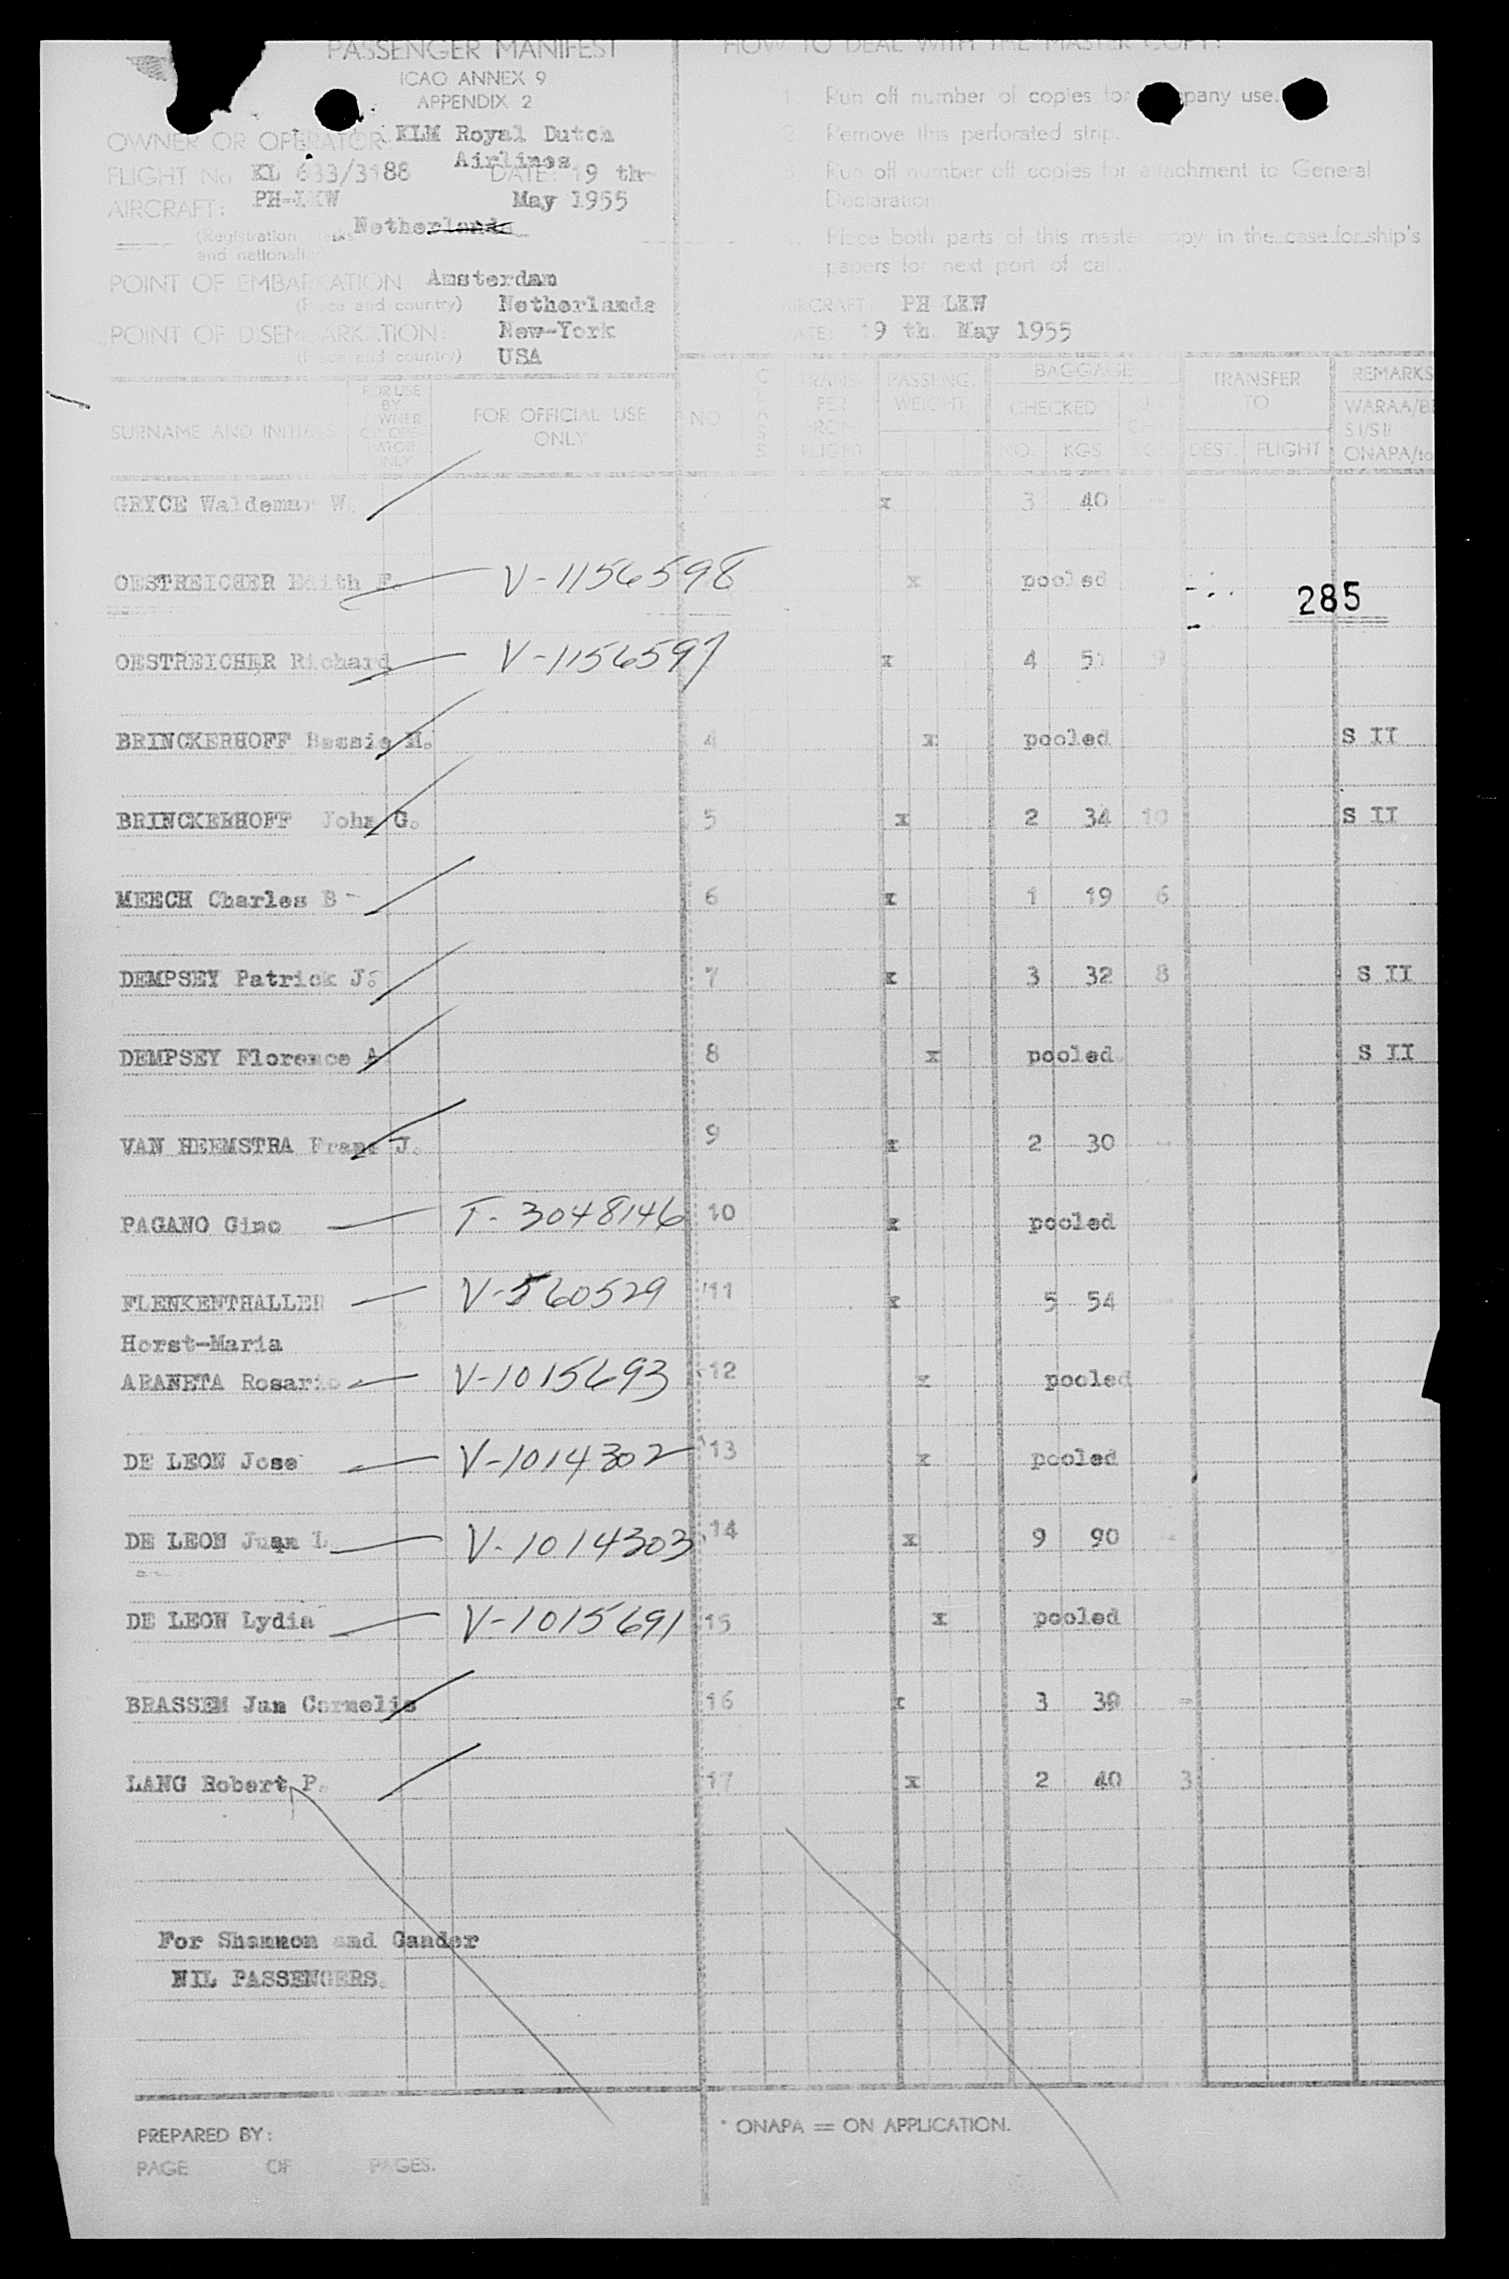 PASSENGER MANIFEST
ICAO ANNEX 9
APPENDIX 2
OWNER OR OPERATOR: KLM Royal Dutch
Airlines
FLIGHT No KL 633/3188 DATE: 19 th
AIRCRAFT: PH-LKW May 1955
(Registration marks Netherlands
and nationality
POINT OF EMBARKATION Amsterdam
(Place and country) Netherlands
POINT OF DISEMBARKATION: New-York
(Place and country) USA
HOW TO DEAL WITH THE MASTER COPY:
1. Run off number of copies for company use.
2. Remove this perforated strip.
3. Run off number off copies for attachment to General
Declaration
4. Place both parts of this master copy in the case for ship's
papers for next port of call.
AIRCRAFT: PH LKW
DATE: 19 th May 1955
SURNAME AND INITIALS FOR USE BY OWNER OR OPERATOR ONLY FOR OFFICIAL USE ONLY NO. CLASS TRANSFER FROM FLIGHT PASSENG. WEIGHT BAGGAGE CHECKED NO. KGS TRANSFER TO DEST. FLIGHT REMARKS
WARAA/B
S I/S II
ONAPA/to
GEYCE Waldemar W. x 3 40 -
OESTREICHER Edith F. V-1156598 x pooled
285
OESTREICHER Richard V-1156597 x 4 51 9
BRINCKERHOFF Bessie M. 4 x pooled S II
BRINCKERHOFF John G. 5 x 2 34 10 S II
MEECH Charles B - 6 x 1 19 6
DEMPSEY Patrick J. 7 x 3 32 8 S II
DEMPSEY Florence A 8 x pooled. S II
VAN HEEMSTRA Frans J. 9 x 2 30 -
PAGANO Gino T-3048146 10 x pooled
FLENKENTHALLER V-560529 11 x 5 54 -
Horst-Maria
ARANETA Rosario V-1015693 12 x pooled
DE LEON Jose V-1014302 13 x pooled
DE LEON Juan L V-1014303 14 x 9 90 -
DE LEON Lydia V-1015691 15 x pooled
BRASSEM Jan Cornelis 16 x 3 39 -
LANG Robert P. 17 x 2 40 3
For Shannon and Gander
NIL PASSENGERS.
PREPARED BY:
PAGE OF PAGES.
* ONAPA = ON APPLICATION.